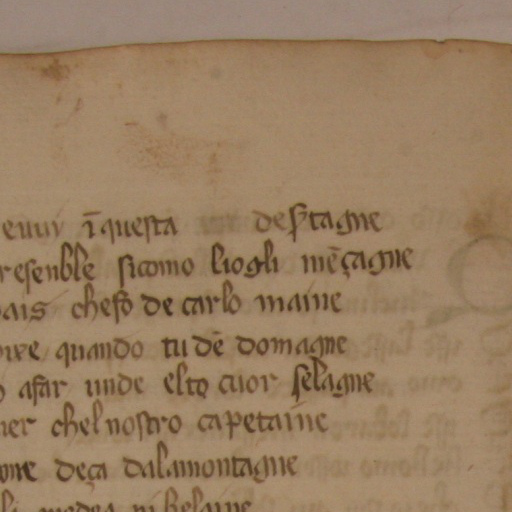 euuy ĩ questa de sp̱tagne
resenble sicomo liogli mẽçagne
ais chefo de carlo maine
quando tu dẽ domagne
afar unde elto cuor selagne
ner chel nostro capetaine
one deça dalamontagne